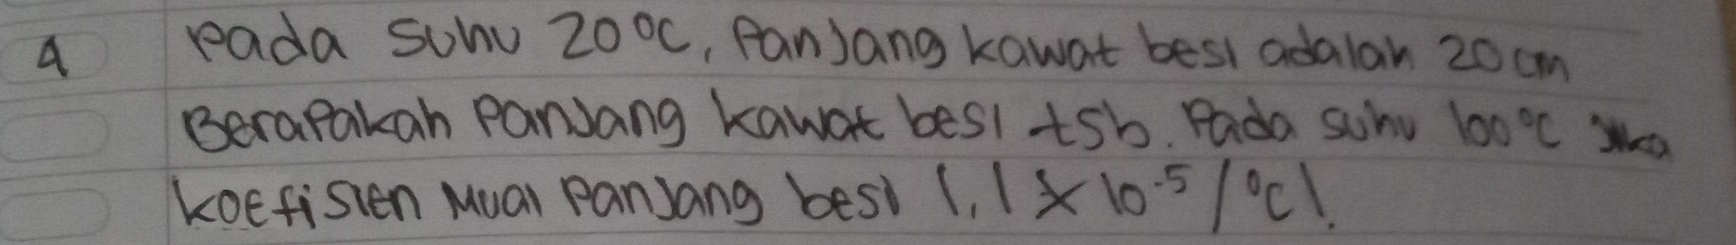 4 Pada suhu 20°C, Panjang kawat besi adalah 20 cm
Berapakah Panjang kawat besi tsb. Pada suhu 100°C jika
koefisien Muai Panjang besi 1,1 x 10⁻⁵/°C!